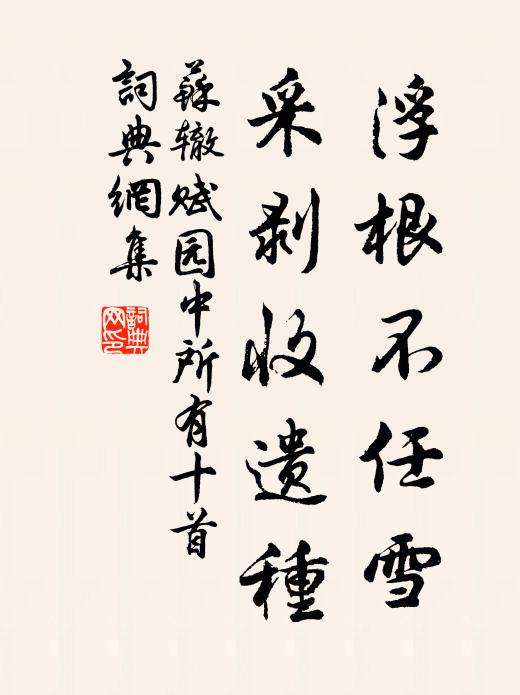 浮根不任雪
采剥收遗種
蘇辙赋园中所有十首
詞典網集
詞典网印